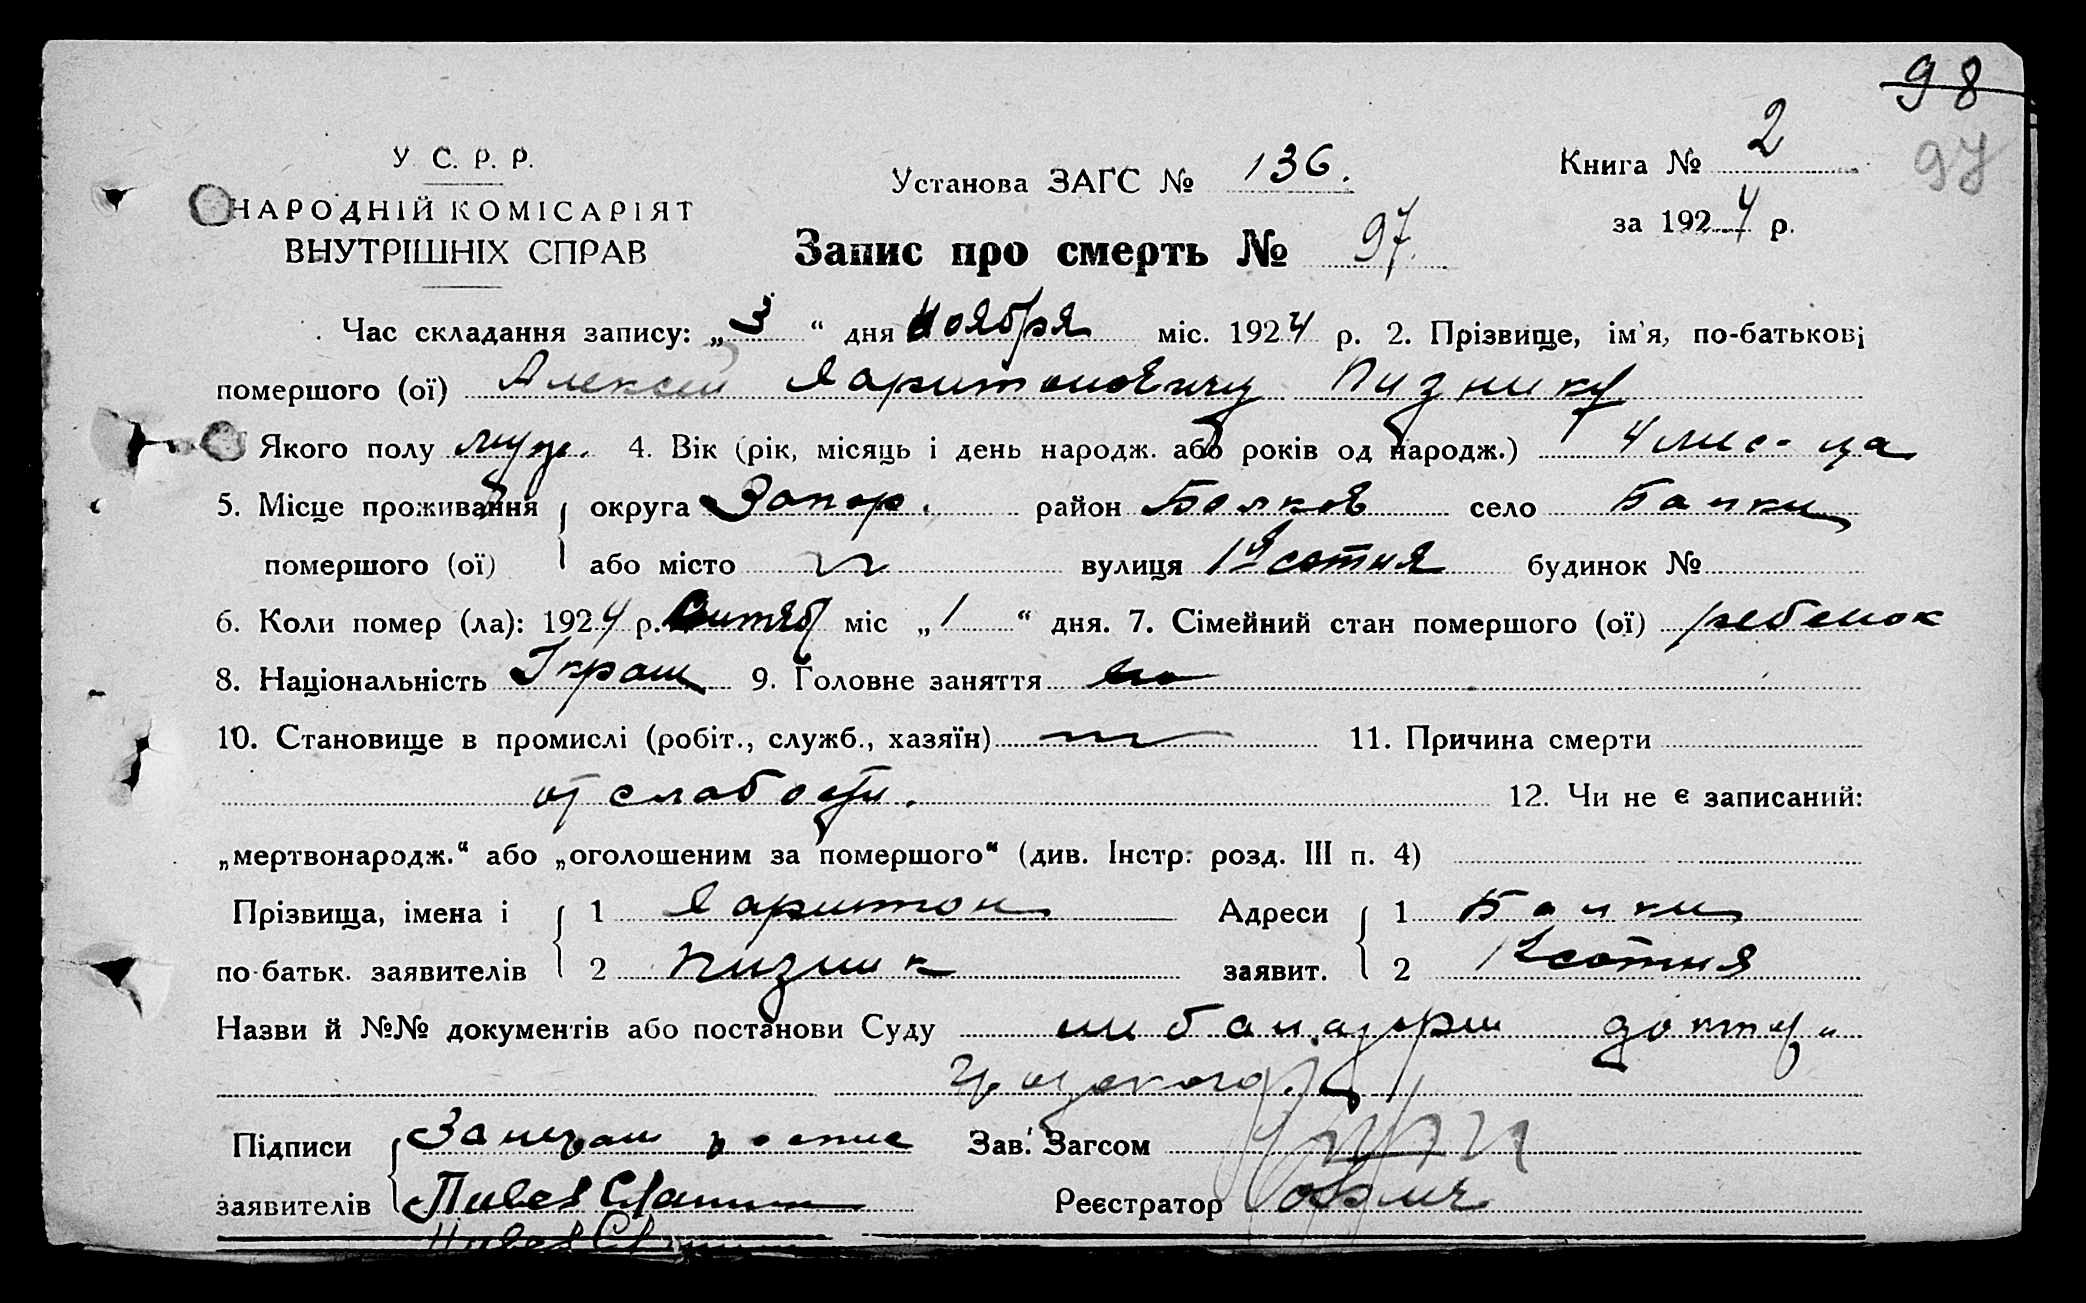 98
97
У. С. Р. Р.
НАРОДНІЙ КОМІСАРІЯТ
ВНУТРІШНІХ СПРАВ
Установа ЗАГС № 136.
Книга № 2
за 1924 р.
Запис про смерть № 97.
Час складання запису: „3“ дня ноября міс. 1924 р. 2. Прізвище, ім'я, по-батькові
помершого (ої) Алексей Харитоновичу Пизнику
Якого полу муж. 4. Вік (рік, місяць і день народж. або років од народж.) 4 мес-ца
5. Місце проживання округа Запор. район Балков село Балки
помершого (ої) або місто вулиця 1я сотня будинок №
6. Коли помер (ла): 1924 р. міс „1“ дня. 7. Сімейний стан помершого (ої) ребенок
8. Національність 9. Головне заняття
10. Становище в промислі (робіт., служб., хазяїн) 11. Причина смерти
от слабости. 12. Чи не є записаний:
„мертвонародж.“ або „оголошеним за помершого“ (див. Інстр. розд. III п. 4)
Прізвища, імена і 1 Харитон Адреси 1 Балки
по-батьк. заявителів 2 Пизник заявит. 2 1я сотня
Назви й №№ документів або постанови Суду
Підписи Зав. Загсом
заявителів Реєстратор